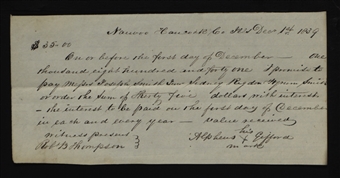 Nauvoo Hancock Co Ills Dec 1st 1839
$35.00
On or before the first day of December — one
thousand eight hundred and forty one I promise to
pay Joseph Smith Jun Sidney Rigdon Hyrum Smith
or order the sum of thirty five dollars with interest
the interest to be paid on the first day of December
in each and every year — value received
witness present
Robt B Thompson
Alpheus his Gifford
X mark